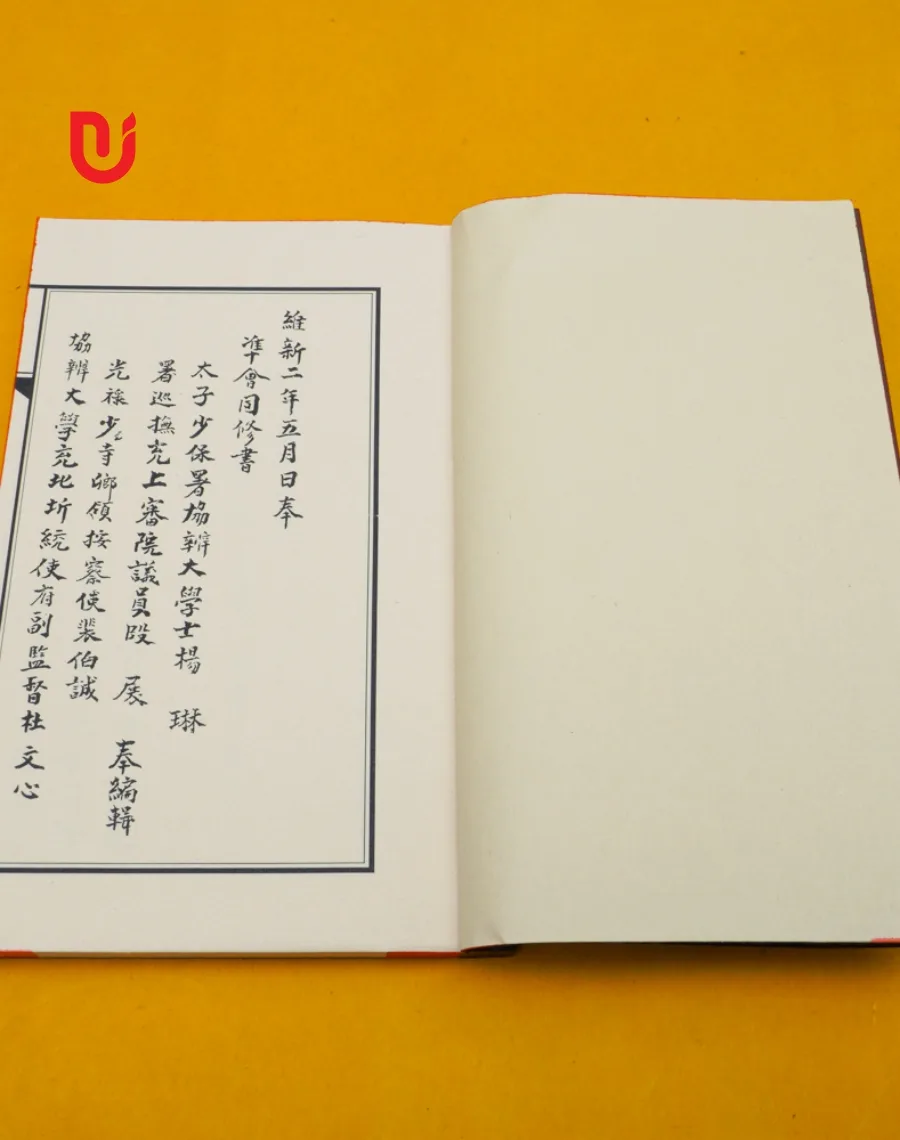 維新二年五月日奉
準會同修書
太子少保署協辦大學士楊 琳
署巡撫充上審院議員段 展 奉編輯
光祿少寺鄉領按察使裴伯誠
協辨大學充北圻統使府副監督杜文心